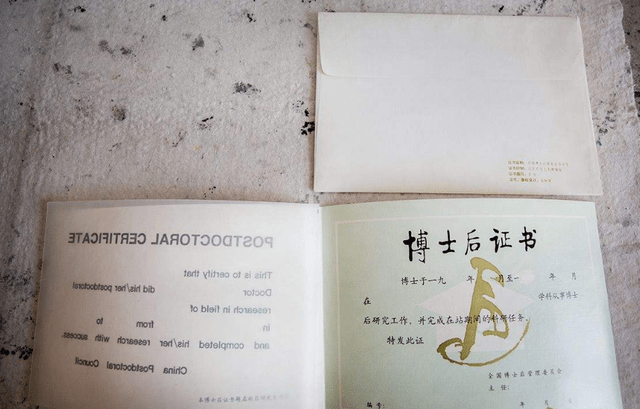 POSTDOCTORAL CERTIFICATE
This is to certify that
Doctor did his/her postdoctoral
research in field of
in from to
and completed his/her research with success.
China Postdoctoral Council
博士后证书
博士于一九 年 月至一 年 月
在 学科从事博士
后研究工作，并完成在站期间的科研任务。
特发此证
全国博士后管理委员会
主任：
编号： 年 月